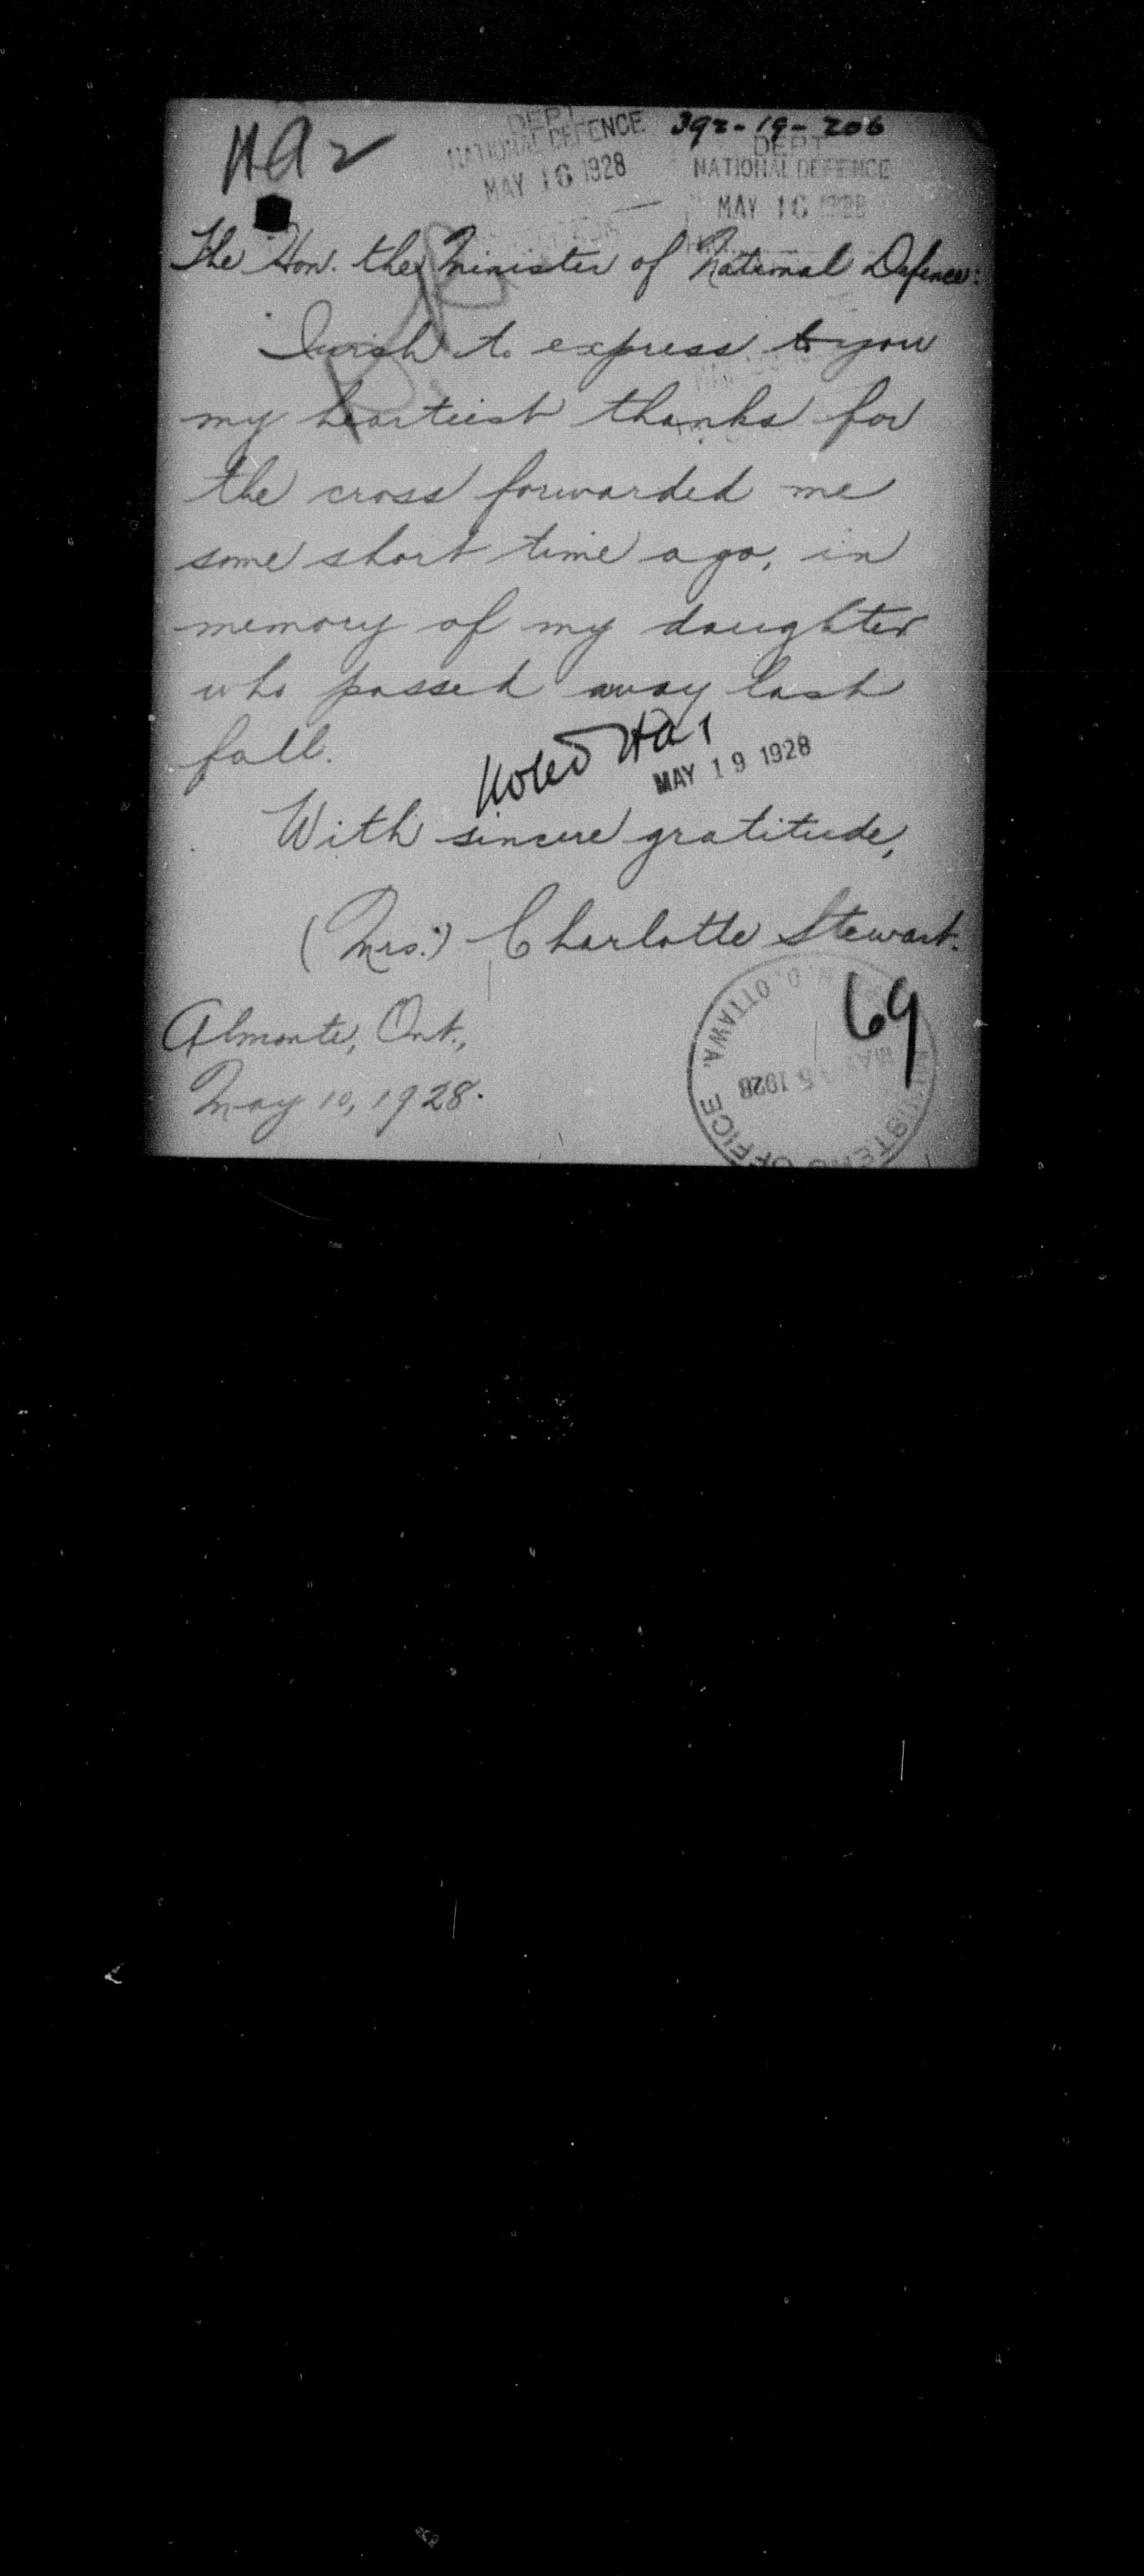 HQ 2
DEPT.
NATIONAL DEFENCE
MAY 16 1928
392-19-206
DEPT
NATIONAL DEFENCE
MAY 16 1928
The Hon. the Minister of National Defence:
I wish to express to you
my heartiest thanks for
the cross forwarded me
some short time ago, in
memory of my daughter
who passed away last
fall.
Noted
MAY 19 1928
With sincere gratitude,
(Mrs.) Charlotte Stewart.
69
Almonte, Ont.,
May 10, 1928.
MINISTERS OFFICE
OTTAWA.
1928